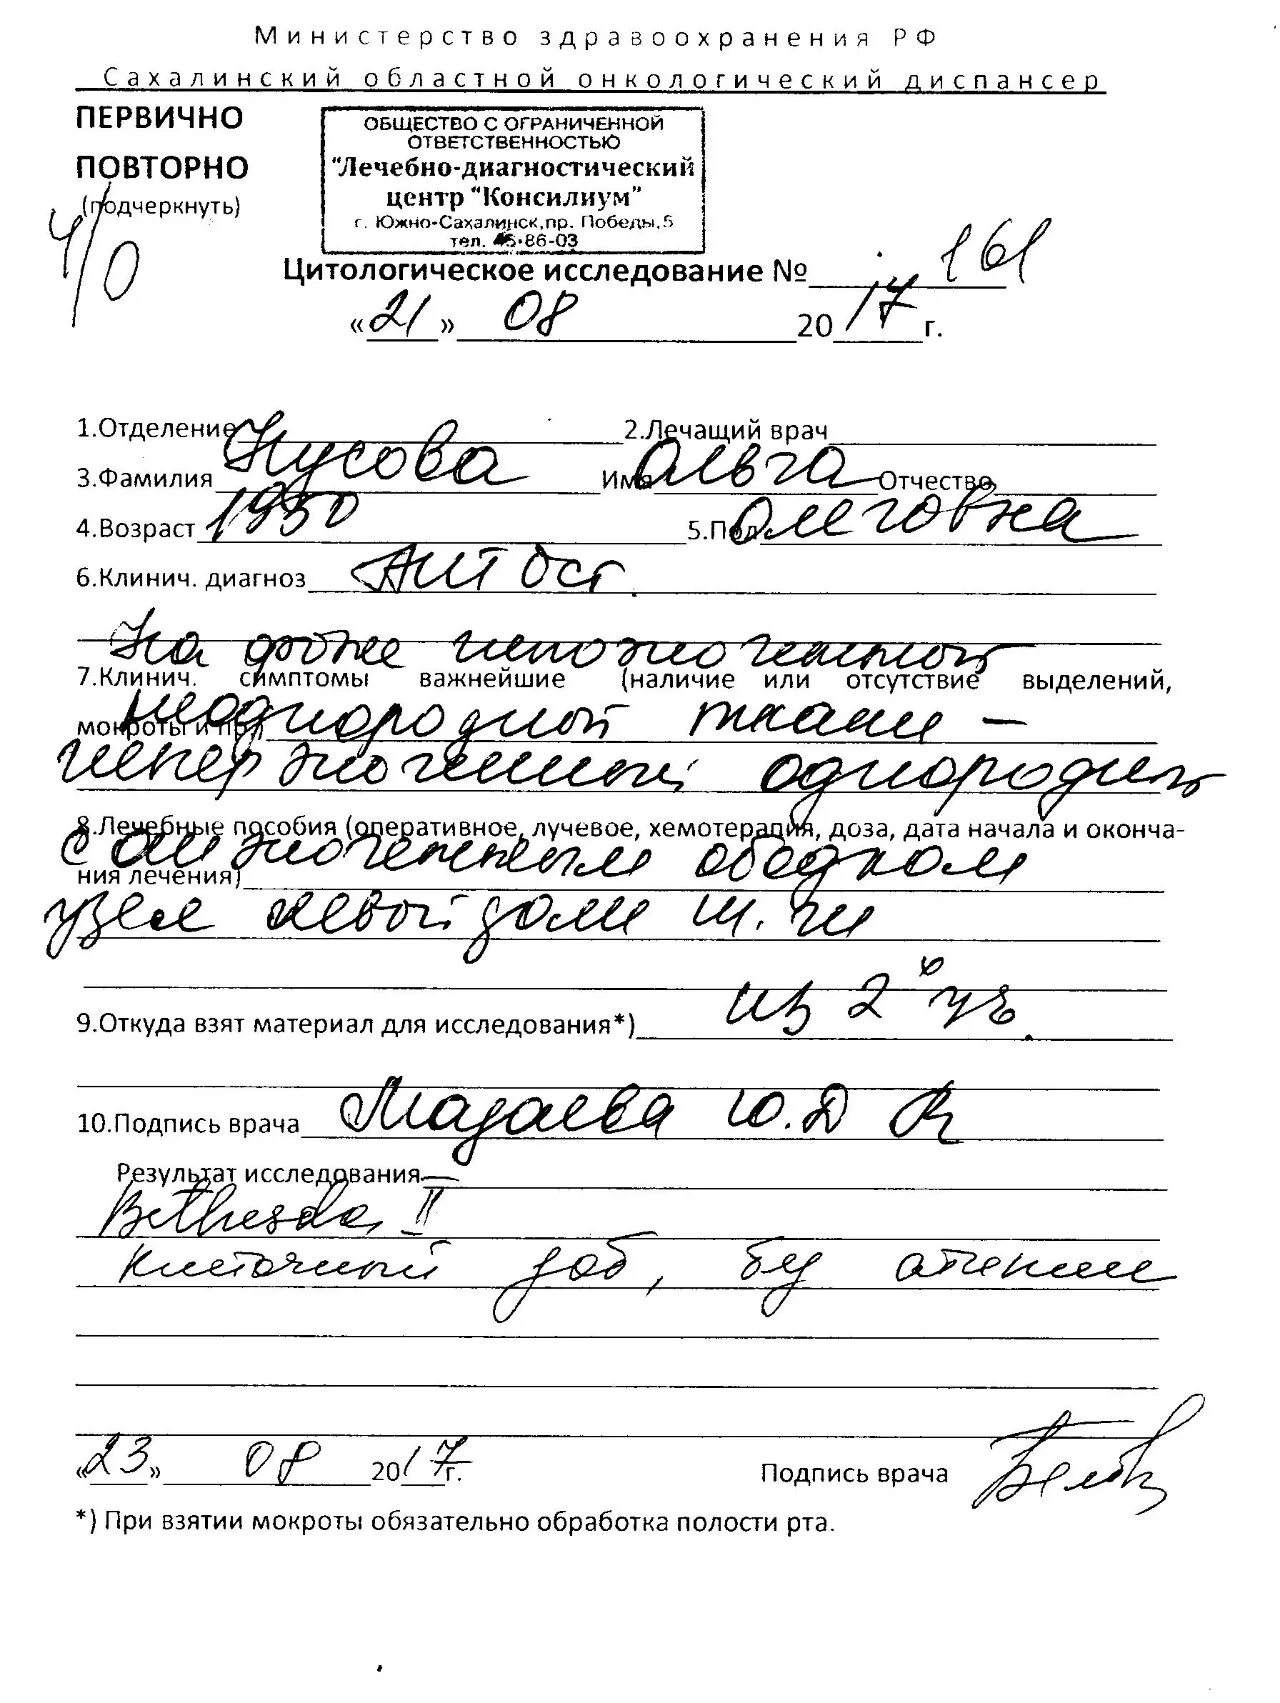 Министерство здравоохранения РФ
Сахалинский областной онкологический диспансер
ПЕРВИЧНО
ПОВТОРНО
(подчеркнуть)
ОБЩЕСТВО С ОГРАНИЧЕННОЙ
ОТВЕТСТВЕННОСТЬЮ
"Лечебно-диагностический
центр "Консилиум"
г. Южно-Сахалинск,пр. Победы,5
тел. 46-86-03
Ч/О
Цитологическое исследование № 161
«21» 08 2017 г.
1.Отделение 2.Лечащий врач
3.Фамилия Кусова Имя Ольга Отчество
4.Возраст 1950 5.Пол Олеговна
6.Клинич. диагноз АИТ
На фоне гипоэхогенной
7.Клинич. симптомы важнейшие (наличие или отсутствие выделений,
мокроты и пр.) неоднородной ткани –
гиперэхогенный однородный
8.Лечебные пособия (оперативное, лучевое, хемотерапия, доза, дата начала и оконча-
с анэхогенным ободком
ния лечения)
узел левой доли щ. ж
9.Откуда взят материал для исследования*) из 2х уч.
10.Подпись врача Мазаева Ю.Д
Результат исследования
Bethesda II
Клеточный зоб, б/у атипии
«23» 08 2017г. Подпись врача
*) При взятии мокроты обязательно обработка полости рта.